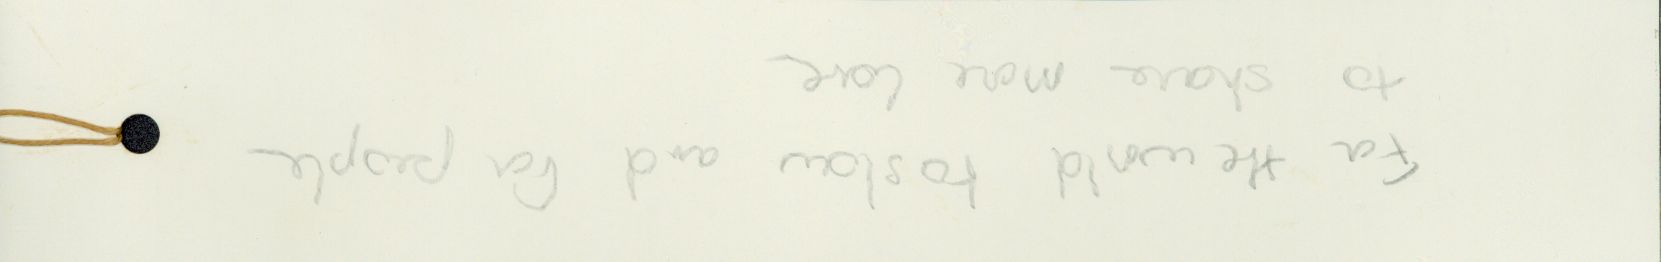 For the world to slow and for people
to share more love